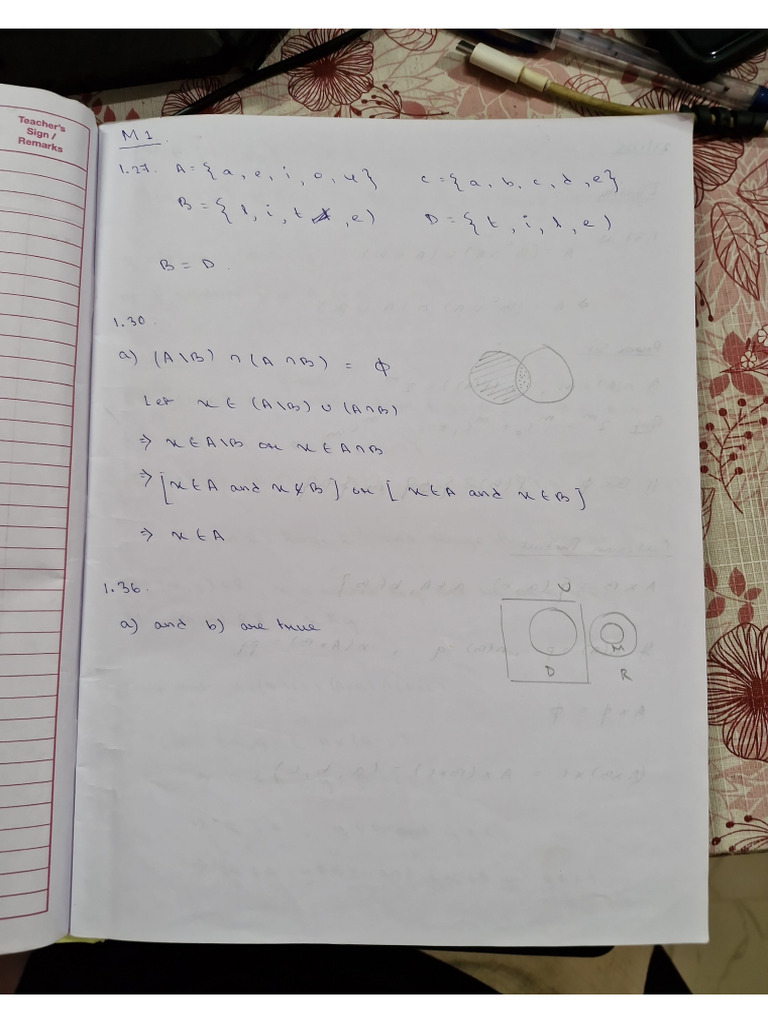 Teacher's
Sign /
Remarks
M1
1.27. A = {a, e, i, o, u} C = {a, b, c, d, e}
B = {d, i, t, e} D = {t, i, d, e}
B = D.
1.30.
a) (A\B) ∩ (A ∩ B) = ϕ
Let x ∈ (A\B) ∪ (A∩B)
⇒ x ∈ A\B or x ∈ A∩B
⇒ [x ∈ A and x ∉ B] or [x ∈ A and x ∈ B]
⇒ x ∈ A
1.36.
U
a) and b) are true
M
D R